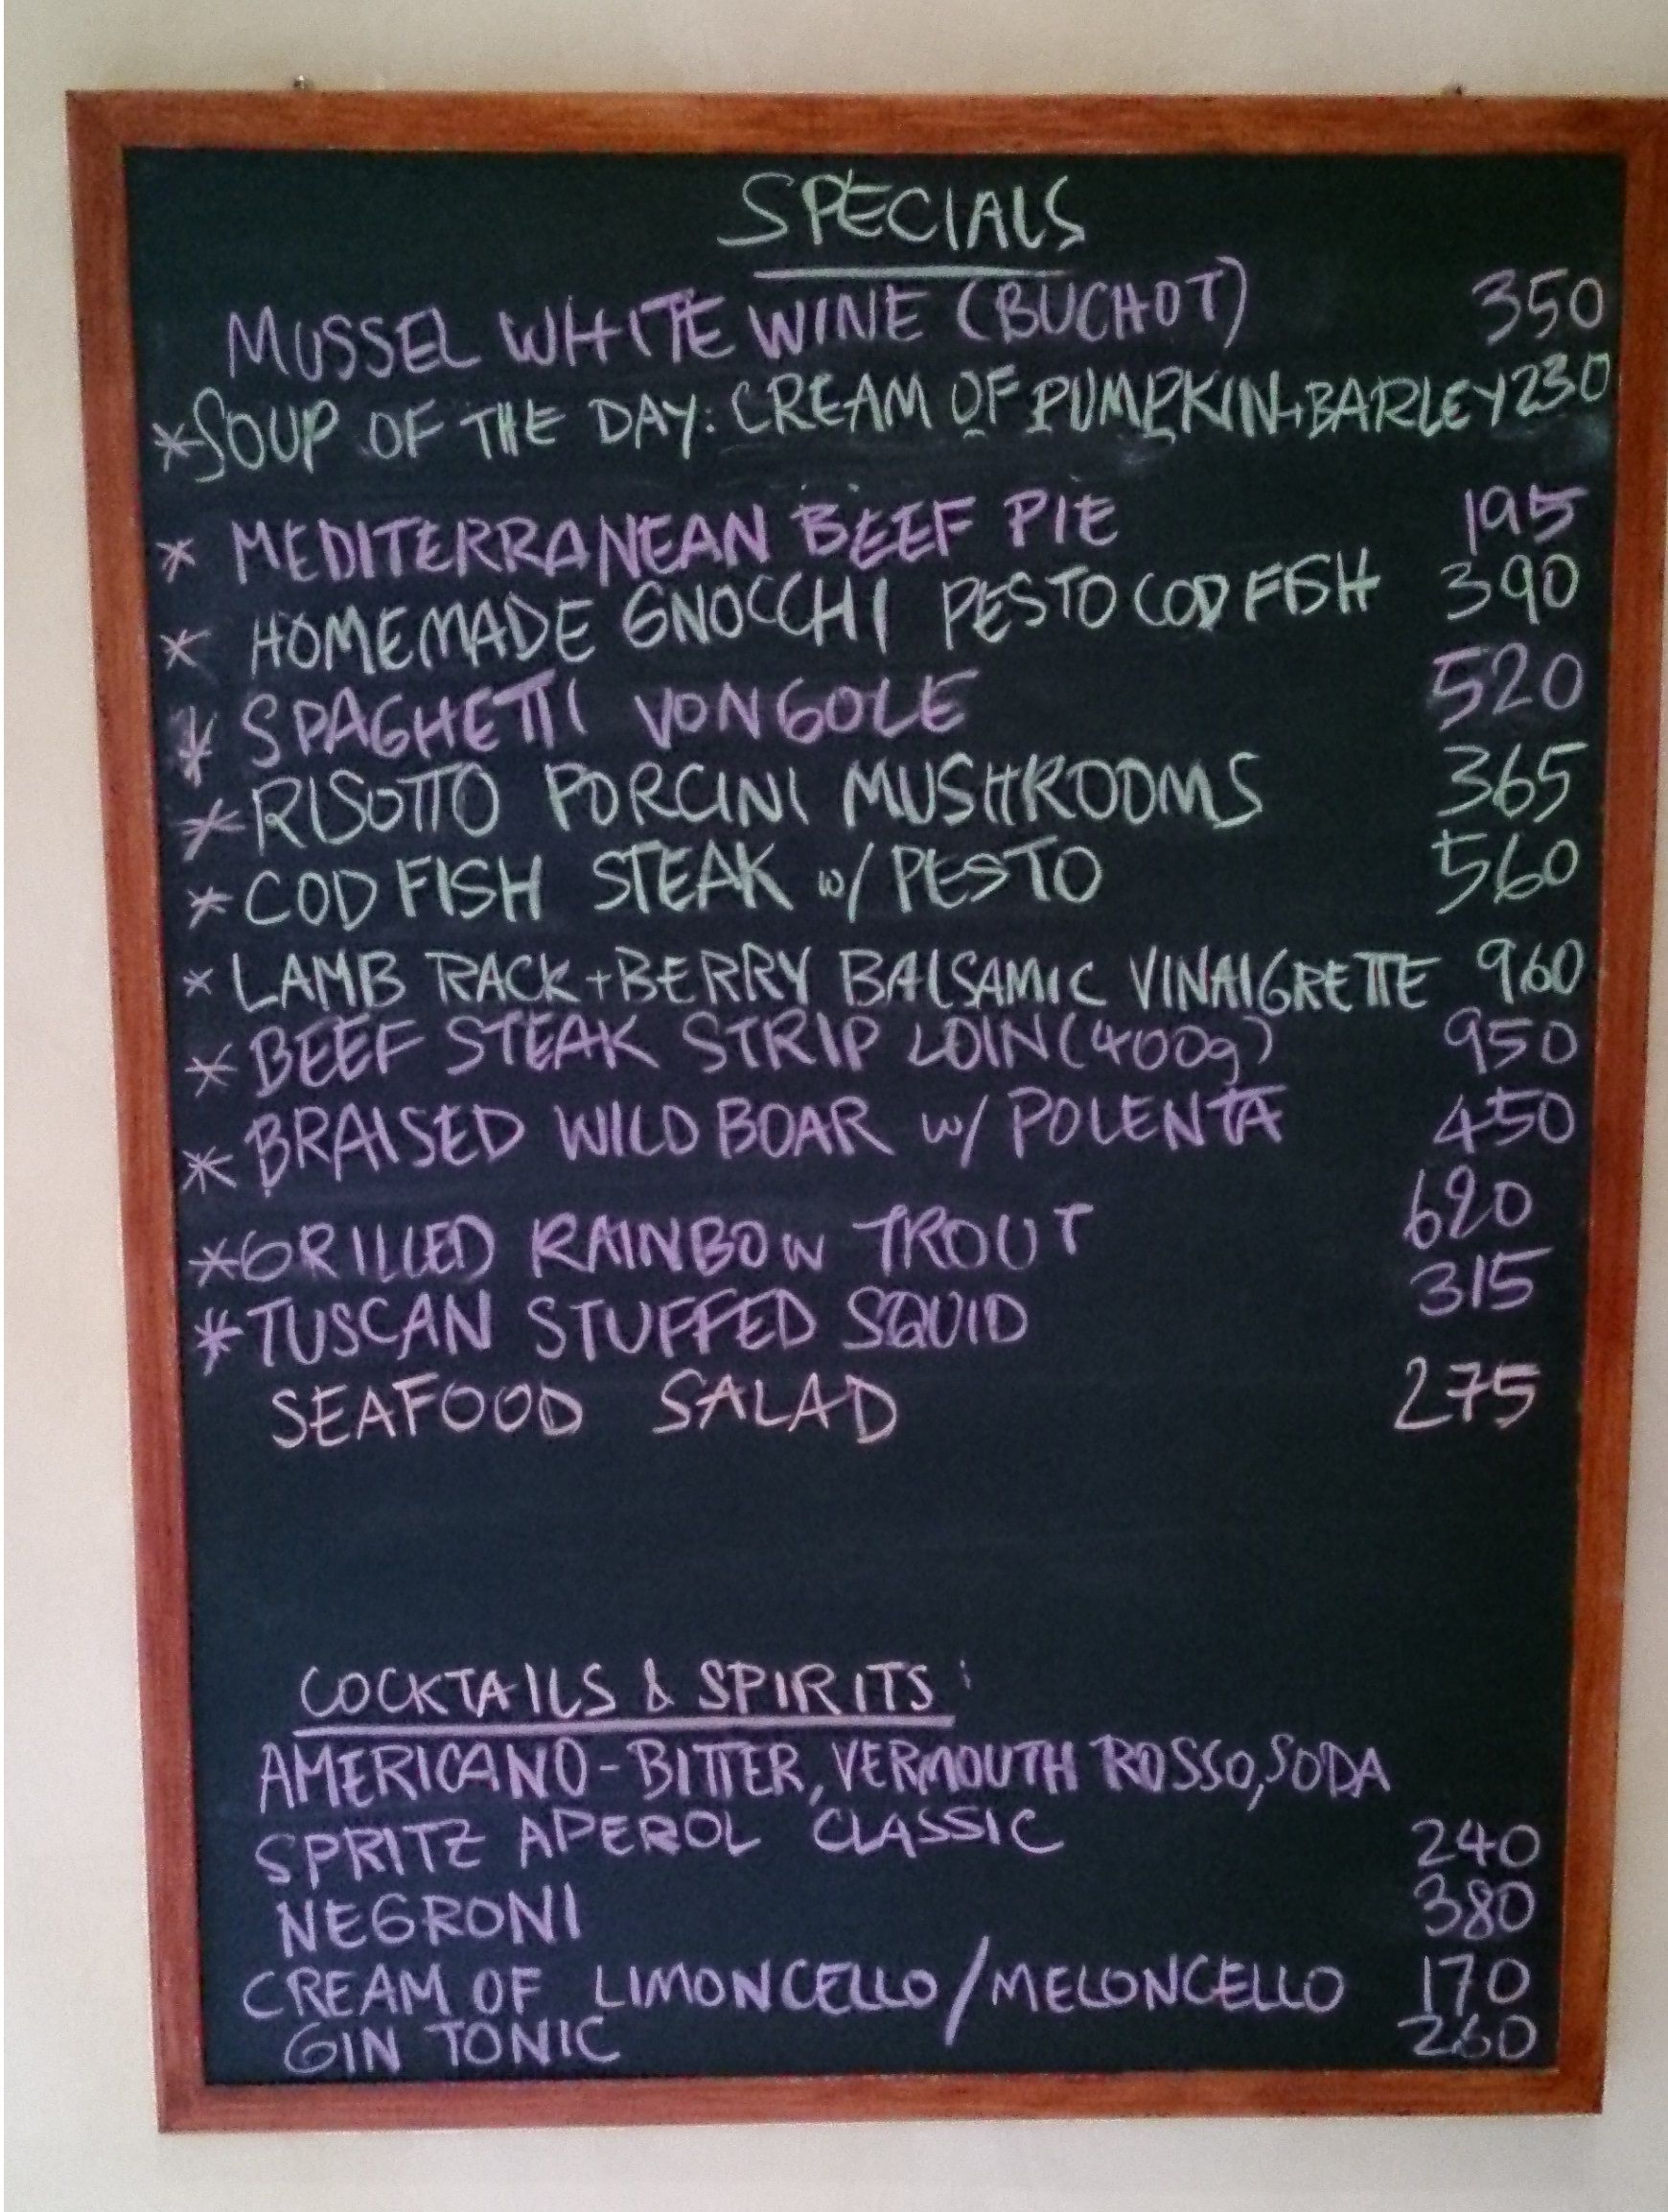 SPECIALS
MUSSEL WHITE WINE (BUCHOT) 350
*SOUP OF THE DAY: CREAM OF PUMPKIN+BARLEY 230
* MEDITERRANEAN BEEF PIE 195
* HOMEMADE GNOCCHI PESTO COD FISH 390
* SPAGHETTI VONGOLE 520
* RISOTTO PORCINI MUSHROOMS 365
* COD FISH STEAK w/ PESTO 560
* LAMB RACK+BERRY BALSAMIC VINAIGRETTE 960
* BEEF STEAK STRIP LOIN (400g) 950
* BRAISED WILD BOAR w/ POLENTA 450
*GRILLED RAINBOW TROUT 620
*TUSCAN STUFFED SQUID 315
SEAFOOD SALAD 275
COCKTAILS & SPIRITS:
AMERICANO - BITTER, VERMOUTH ROSSO, SODA
SPRITZ APEROL CLASSIC 240
NEGRONI 380
CREAM OF LIMONCELLO/MELONCELLO 170
GIN TONIC 260